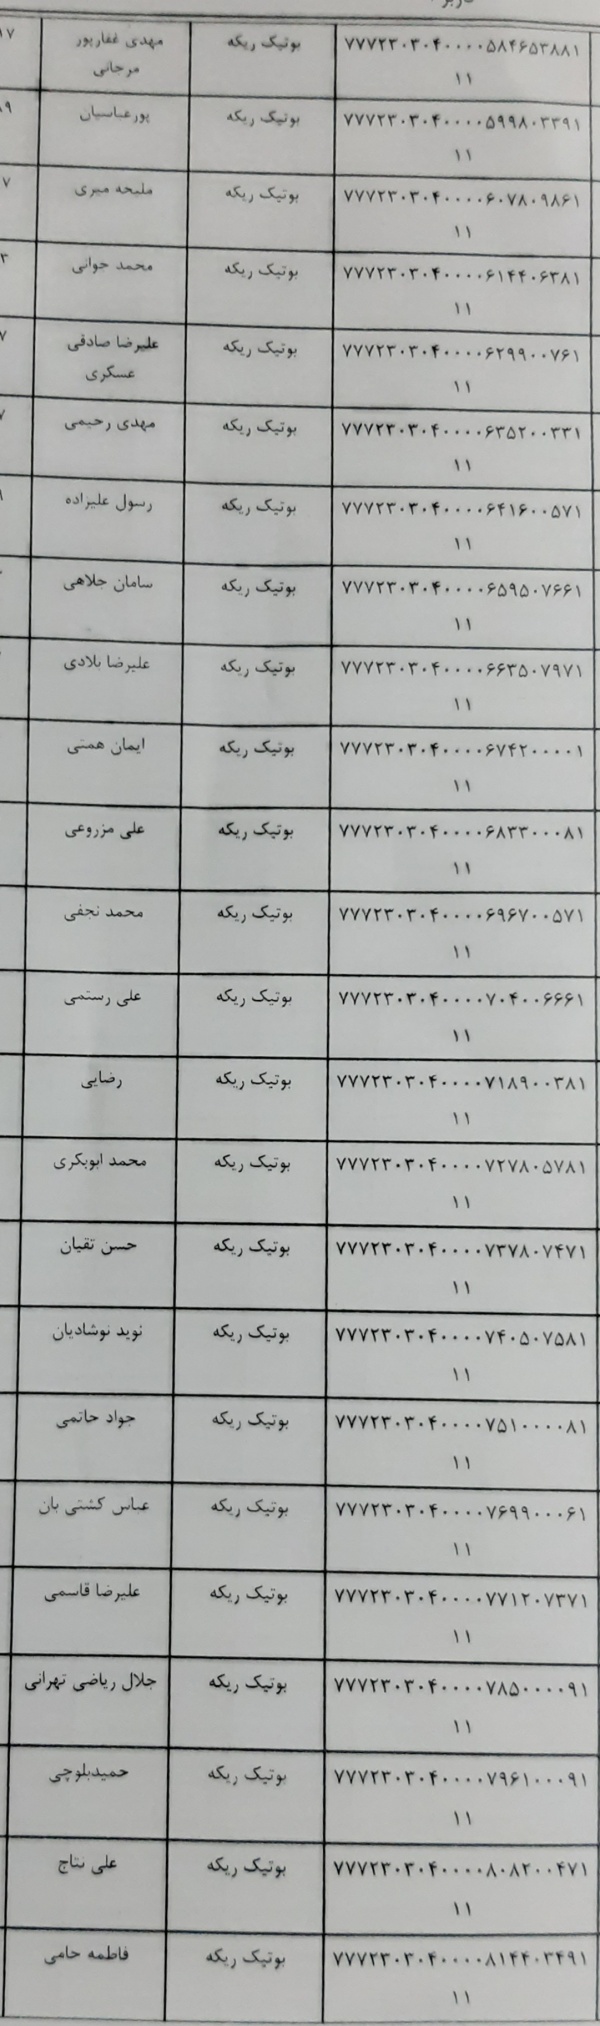 ۷۷۷۲۳۰۳۰۴۰۰۰۰۵۸۴۶۵۳۸۸۱ بوتیک ریکه مهدی غفارپور
۱۱ مرجانی
۷۷۷۲۳۰۳۰۴۰۰۰۰۵۹۹۸۰۳۳۹۱ بوتیک ریکه پورعباسیان
۱۱
۷۷۷۲۳۰۳۰۴۰۰۰۰۶۰۷۸۰۹۸۶۱ بوتیک ریکه ملیحه میری
۱۱
۷۷۷۲۳۰۳۰۴۰۰۰۰۶۱۴۴۰۶۳۸۱ بوتیک ریکه محمد جوانی
۱۱
۷۷۷۲۳۰۳۰۴۰۰۰۰۶۲۹۹۰۰۷۶۱ بوتیک ریکه علیرضا صادقی
۱۱ عسکری
۷۷۷۲۳۰۳۰۴۰۰۰۰۶۳۵۲۰۰۳۳۱ بوتیک ریکه مهدی رحیمی
۱۱
۷۷۷۲۳۰۳۰۴۰۰۰۰۶۴۱۶۰۰۵۷۱ بوتیک ریکه رسول علیزاده
۱۱
۷۷۷۲۳۰۳۰۴۰۰۰۰۶۵۹۵۰۷۶۶۱ بوتیک ریکه سامان جلاهی
۱۱
۷۷۷۲۳۰۳۰۴۰۰۰۰۶۶۳۵۰۷۹۷۱ بوتیک ریکه علیرضا بلادی
۱۱
۷۷۷۲۳۰۳۰۴۰۰۰۰۶۷۴۲۰۰۰۰۱ بوتیک ریکه ایمان همتی
۱۱
۷۷۷۲۳۰۳۰۴۰۰۰۰۶۸۳۳۰۰۰۸۱ بوتیک ریکه علی مزروعی
۱۱
۷۷۷۲۳۰۳۰۴۰۰۰۰۶۹۶۷۰۰۵۷۱ بوتیک ریکه محمد نجفی
۱۱
۷۷۷۲۳۰۳۰۴۰۰۰۰۷۰۴۰۰۶۶۶۱ بوتیک ریکه علی رستمی
۱۱
۷۷۷۲۳۰۳۰۴۰۰۰۰۷۱۸۹۰۰۳۸۱ بوتیک ریکه رضایی
۱۱
۷۷۷۲۳۰۳۰۴۰۰۰۰۷۲۷۸۰۵۷۸۱ بوتیک ریکه محمد ابوبکری
۱۱
۷۷۷۲۳۰۳۰۴۰۰۰۰۷۳۷۸۰۷۴۷۱ بوتیک ریکه حسن تقیان
۱۱
۷۷۷۲۳۰۳۰۴۰۰۰۰۷۴۰۵۰۷۵۸۱ بوتیک ریکه نوید نوشادیان
۱۱
۷۷۷۲۳۰۳۰۴۰۰۰۰۷۵۱۰۰۰۰۸۱ بوتیک ریکه جواد حاتمی
۱۱
۷۷۷۲۳۰۳۰۴۰۰۰۰۷۶۹۹۰۰۰۶۱ بوتیک ریکه عباس کشتی بان
۱۱
۷۷۷۲۳۰۳۰۴۰۰۰۰۷۷۱۲۰۷۳۷۱ بوتیک ریکه علیرضا قاسمی
۱۱
۷۷۷۲۳۰۳۰۴۰۰۰۰۷۸۵۰۰۰۰۹۱ بوتیک ریکه جلال ریاضی تهرانی
۱۱
۷۷۷۲۳۰۳۰۴۰۰۰۰۷۹۶۱۰۰۰۹۱ بوتیک ریکه حمیدبلوچی
۱۱
۷۷۷۲۳۰۳۰۴۰۰۰۰۸۰۸۲۰۰۴۷۱ بوتیک ریکه علی نتاج
۱۱
۷۷۷۲۳۰۳۰۴۰۰۰۰۸۱۴۴۰۳۴۹۱ بوتیک ریکه فاطمه حامی
۱۱